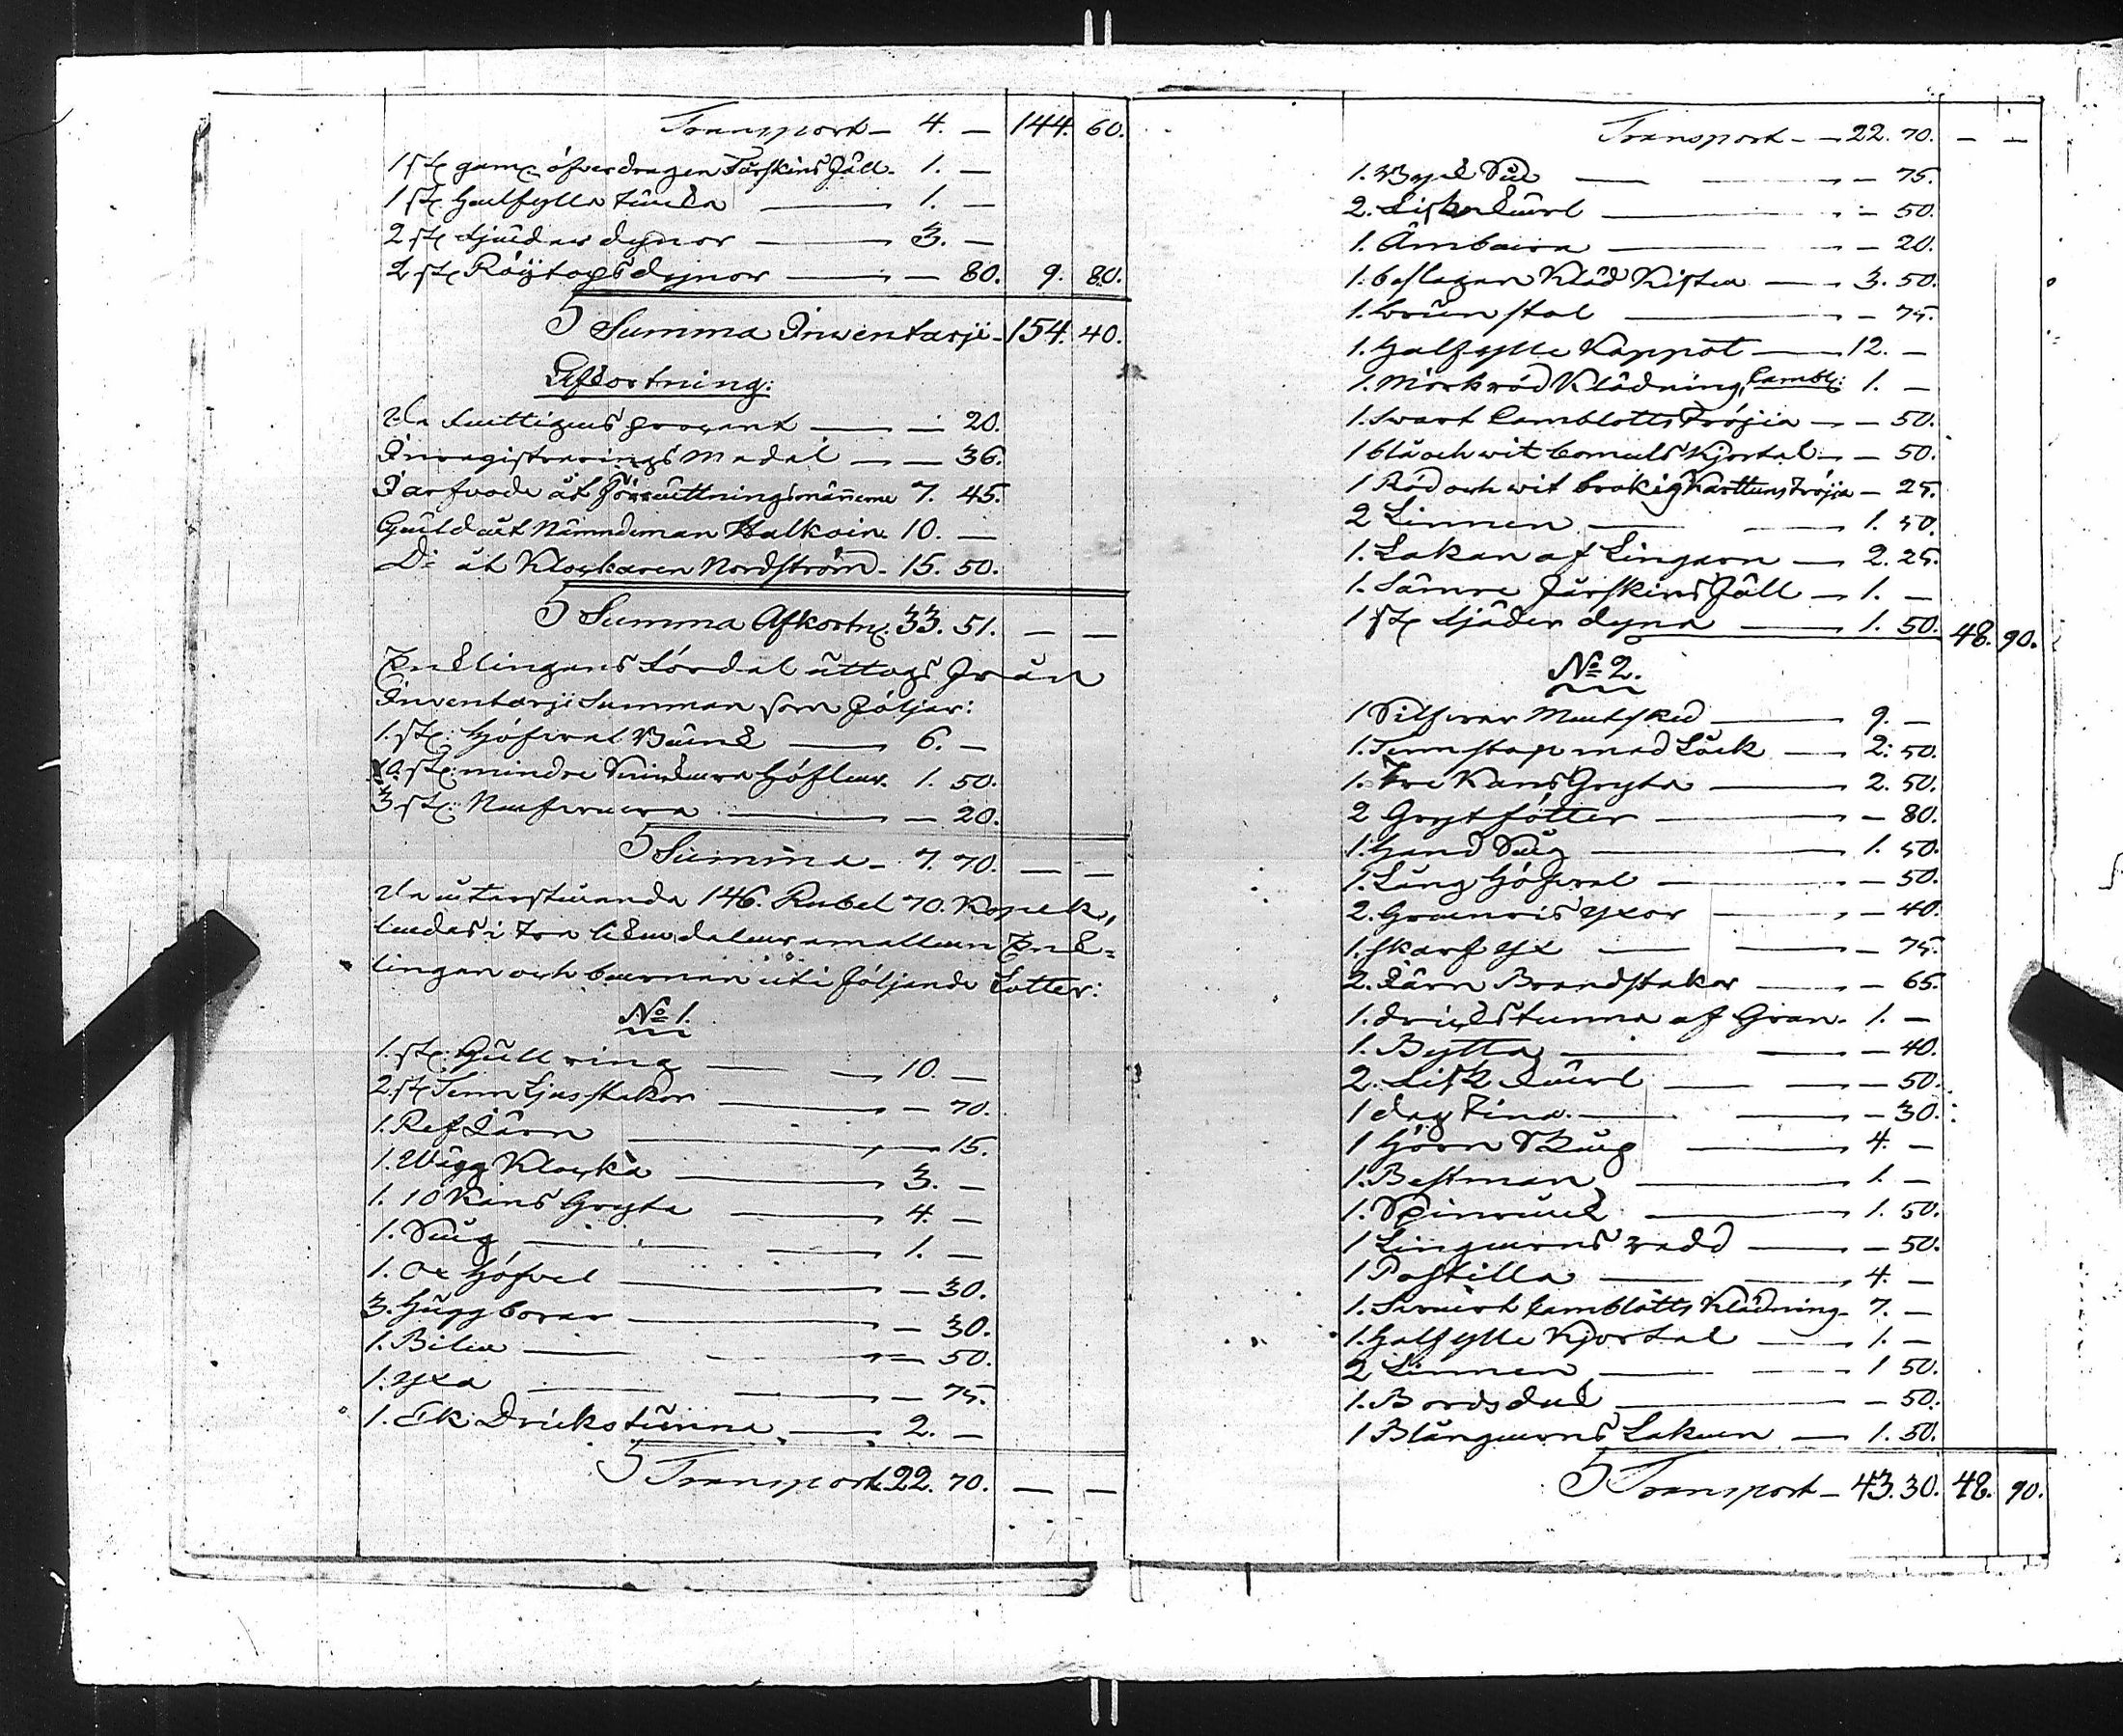 Transport - 4. — 144. 60.
1 st. gam. öfverdragen Fårskins Fäll. 1. —
1 st. Halfylle täcke — 1. —
2 st. Fjäder dynor — 3. —
2 st. Röytags dynor — — 80. 9. 80.
Summa Inventarji - 154. 40.
Afkortning:
De fattigas procent — — 20.
Inregistrerings medel — — 36.
Jarfvode åt Förrättningsmännerne 7. 45.
Gäld åt Nämndeman Halkoin 10. —
D:o åt Klockaren Nordström - 15. 50.
Summa Afkortn. 33. 51. — —
Enklingens fördel uttogs från
Inventarji Summan som följer:
1. st. Höfvel Bänk — 6. —
10. st. mindre Snickare Höflar. 1. 50.
3 st. Nafvare — — 20.
Summa - 7. 70. — —
De återstående 146. Rubel 70. Kopek,
lades i tre lika delar emellan Enk-
lingen och barnen uti följande Lotter:
No 1.
1. st. Gull ring — 10. —
2. st. Tenn Ljusstakor — — 70.
1. Ref Järn — 15.
1. Wägg Klocka — 3. —
1. 10 Kans Gryta — 4. —
1. Såg — 1. —
1. Ox Höfvel — — 30.
3. Hugg borar — — 30.
1. Bila — — 50.
1. Yxa — — 75.
1. Ek Dricks tunna — 2. —
Transport 22. 70. — —
Transport - — 22. 70. — —
1. — — 75.
2. — — 50.
1. Ämbare — — 20.
1. beslagen Kläd Kista — 3. 50.
1. stol — — 75.
1. Halfylle Kappot — 12. —
1. Mörkröd Klädning, Cambl: 1. —
1. Svart Camblotts Tröjia — — 50.
1 blå och wit bomuls Kjortel — — 50.
1 Röd och wit brokig Kattuns Tröjia — 25.
2 Linnen — 1. 50.
1. Lakan af Lingarn — 2. 25.
1. Sämre Fårskins Fäll — 1. —
1 st. Fjäder dyna — 1. 50. 48. 90.
No 2.
1 Silfver Matsked — 9. —
1. Tenn stop med Låck — 2. 50.
1. Tre Kans Gryta — 2. 50.
2 Grytfötter — — 80.
1. Hand Såg — 1. 50.
1. Lång Höfvel — — 50.
2. Granris Yxor — — 40.
1. Skarf Yx — — 75.
2. Järn Brandstakor — — 65.
1. dricks tunna af Gran. 1. —
1. Bytta — — 40.
2. — — 50.
1 deg Tina — — 30.
1 Hörn Skåp — 4. —
1. Bestman — 1. —
1. Spinråck — 1. 50.
1 Lingarns — — 50.
1 Postilla — 4. —
1. Swart Camblotts Klädning 7. —
1. Halfylle Kjortel — 1. —
2 Linnen — 1 50.
1. Bordsduk — — 50.
1 Blångarns Lakan — 1. 50.
Transport - 43. 30. 48. 90.